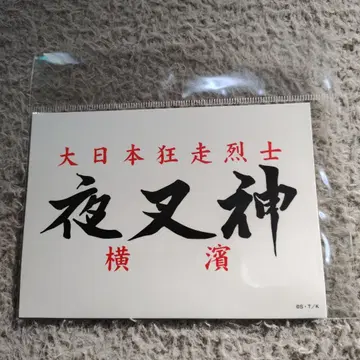 大日本狂走烈士
夜叉神
横 濱